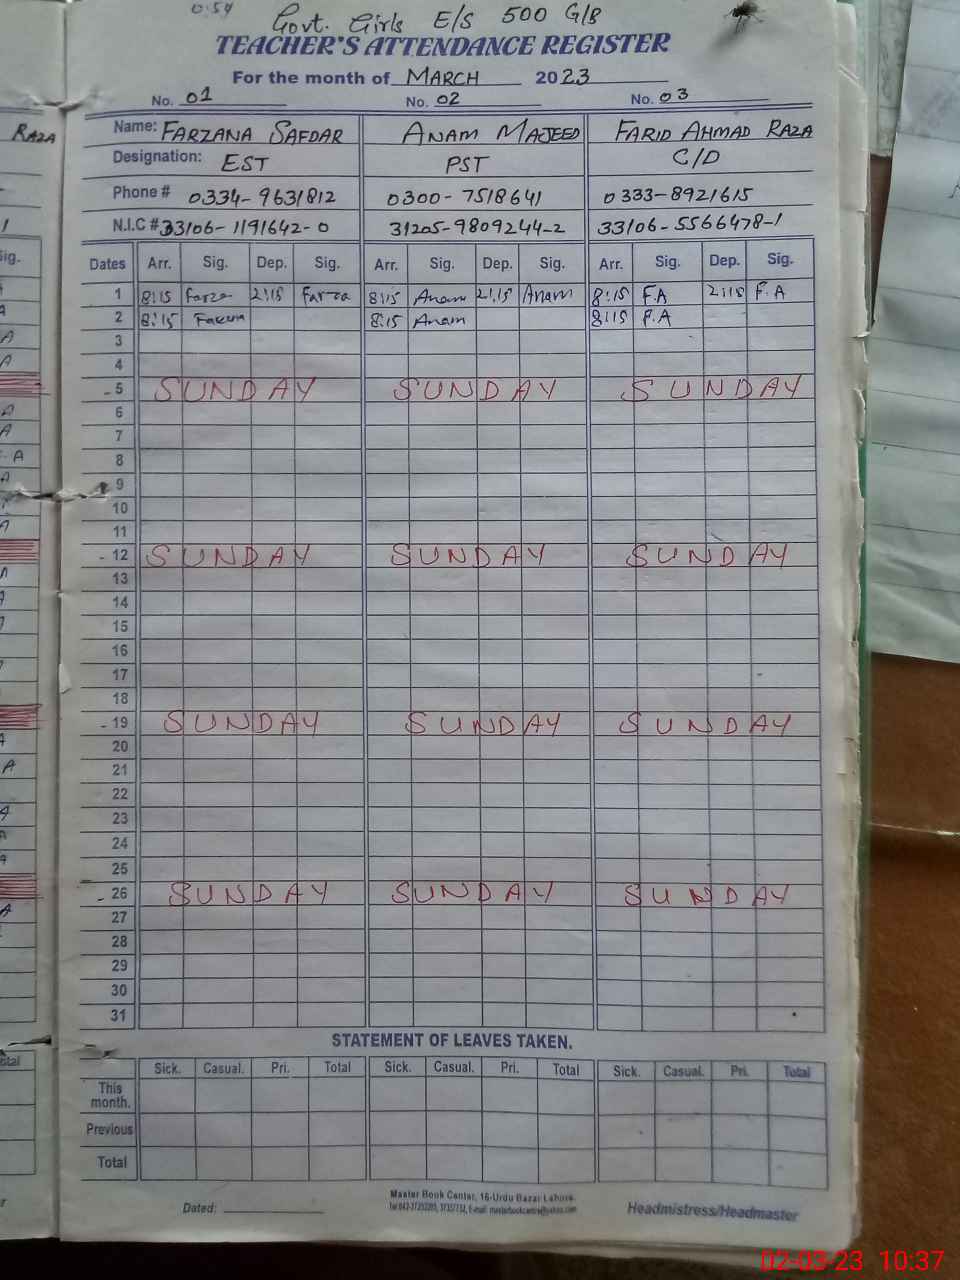 0:54
Govt. Girls E/S 500 G/B
TEACHER'S ATTENDANCE REGISTER
For the month of MARCH 2023
No. 01 No. 02 No. 03
RAZA
Name: FARZANA SAFDAR ANAM MAJEED FARID AHMAD RAZA
Designation: EST PST C/D
Phone # 0334-9631812 0300-7518641 0333-8921615
N.I.C # 33106-1191642-0 31205-9809244-2 33106-5566478-1
Dates Arr. Sig. Dep. Sig. Arr. Sig. Dep. Sig. Arr. Sig. Dep. Sig.
1 8:15 Farza 2:15 Farzoa 8:15 Anam 2:15 Anam 8:15 F.A 2:15 F.A
2 8:15 8:15 Anam 8:15 F.A
3
4
5 SUNDAY SUNDAY SUNDAY
6
7
8
9
10
11
12 SUNDAY SUNDAY SUNDAY
13
14
15
16
17
18
19 SUNDAY SUNDAY SUNDAY
20
21
22
23
24
25
26 SUNDAY SUNDAY SUNDAY
27
28
29
30
31
STATEMENT OF LEAVES TAKEN.
Sick. Casual. Pri. Total Sick. Casual. Pri. Total Sick. Casual. Pri. Total
This month.
Previous
Total
Dated:
Master Book Center, 16-Urdu Bazar Lahore.
Headmistress/Headmaster
02-03-23 10:37